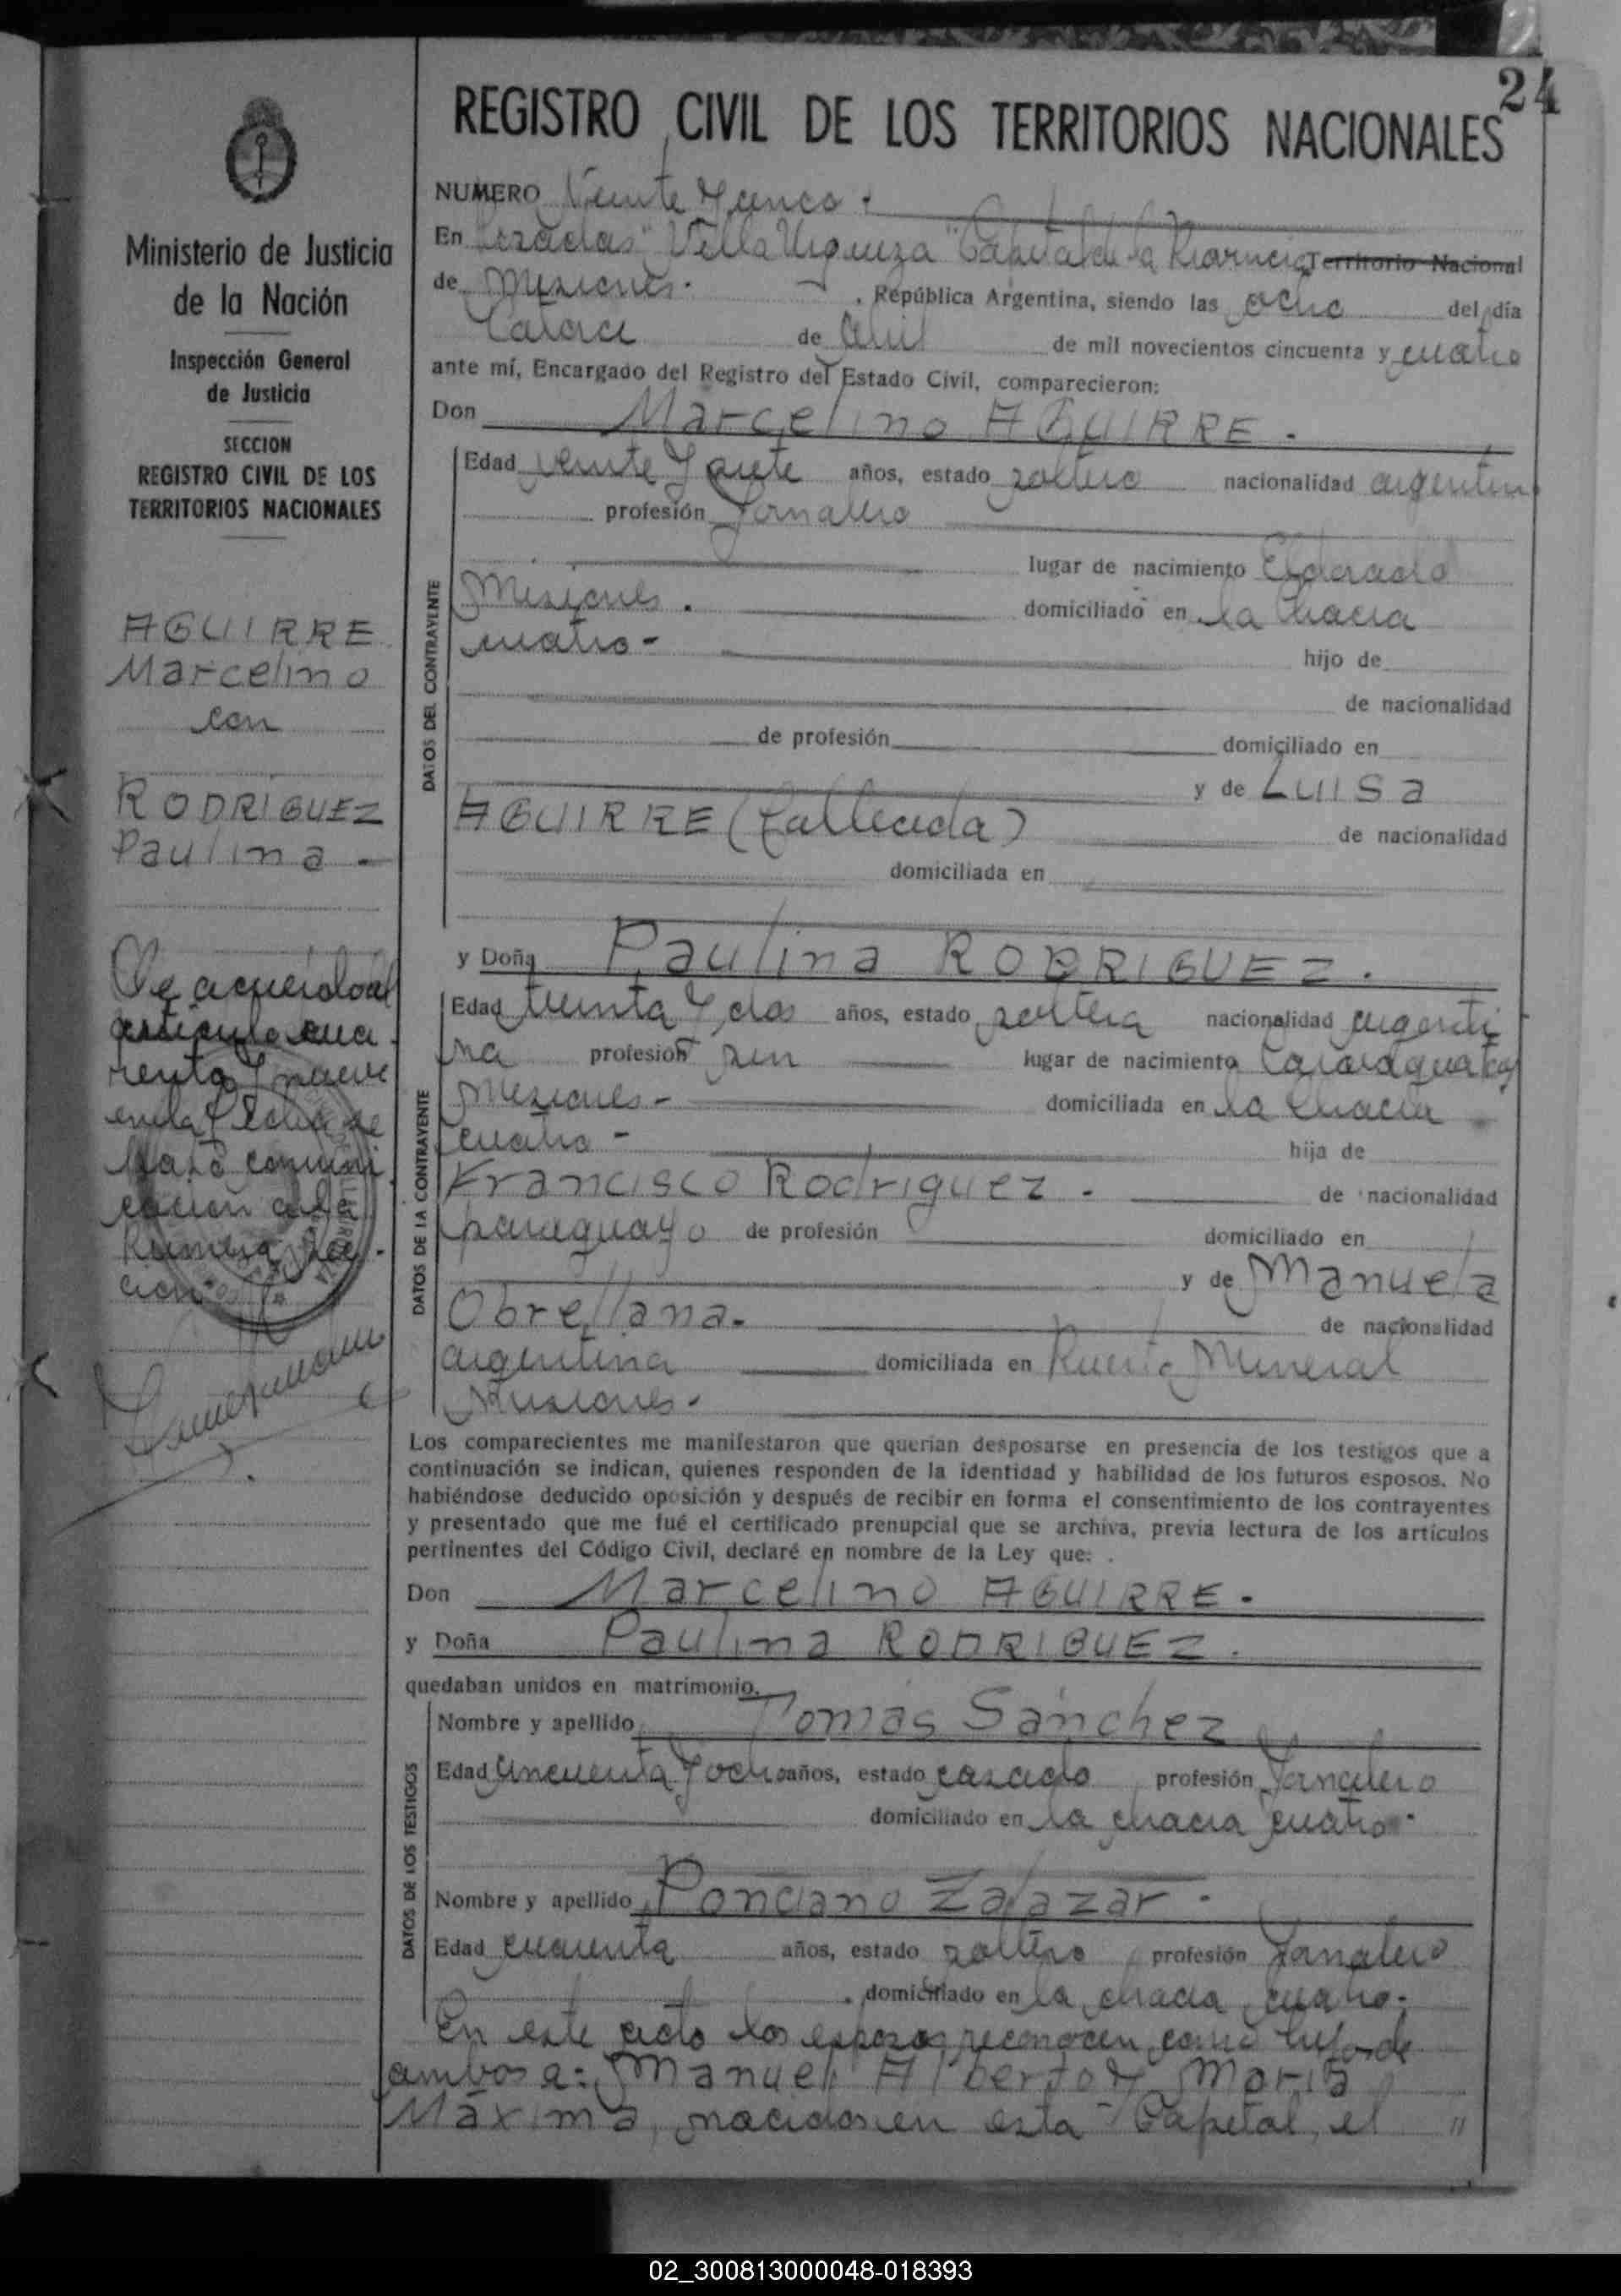 24
REGISTRO CIVIL DE LOS TERRITORIOS NACIONALES
Ministerio de Justicia
de la Nación
Inspección General
de Justicia
SECCION
REGISTRO CIVIL DE LOS
TERRITORIOS NACIONALES
AGUIRRE
Marcelino
con
RODRIGUEZ
Paulina -
De acuerdo al
artículo cua
renta y nueve
en la fecha se
pasó comuni
cación a la
Primera Sec-
ción
NUMERO Veinte y cinco.
En Posadas "Villa Urquiza" Capital de la Provincia Territorio Nacional
de Misiones. República Argentina, siendo las ocho del día
Catorce de Abril de mil novecientos cincuenta y cuatro
ante mí, Encargado del Registro del Estado Civil, comparecieron:
Don Marcelino AGUIRRE.
DATOS DEL CONTRAYENTE
Edad veinte y siete años, estado soltero nacionalidad argentino
profesión Jornalero
lugar de nacimiento Eldorado
Misiones. domiciliado en la Chacra
cuatro- hijo de
de nacionalidad
de profesión domiciliado en
y de LUISA
AGUIRRE (fallecida) de nacionalidad
domiciliada en
y Doña Paulina RODRIGUEZ.
DATOS DE LA CONTRAYENTE
Edad treinta y dos años, estado soltera nacionalidad argenti
na profesión sin lugar de nacimiento Caraaguatay
Misiones- domiciliada en la Chacra
cuatro- hija de
Francisco Rodriguez. de nacionalidad
paraguayo de profesión domiciliado en
y de Manuela
Obrellana. de nacionalidad
argentina domiciliada en Puerto Mineral
Misiones.
Los comparecientes me manifestaron que querian desposarse en presencia de los testigos que a
continuación se indican, quienes responden de la identidad y habilidad de los futuros esposos. No
habiéndose deducido oposición y después de recibir en forma el consentimiento de los contrayentes
y presentado que me fué el certificado prenupcial que se archiva, previa lectura de los artículos
pertinentes del Código Civil, declaré en nombre de la Ley que:
Don Marcelino AGUIRRE.
y Doña Paulina RODRIGUEZ.
quedaban unidos en matrimonio.
DATOS DE LOS TESTIGOS
Nombre y apellido Tomás Sánchez
Edad cincuenta y ocho años, estado casado profesión Jornalero
domiciliado en la chacra cuatro.
Nombre y apellido Ponciano Zalazar.
Edad cuarenta años, estado soltero profesión Jornalero
domiciliado en la chacra cuatro.
En este acto los esposos reconocen como hijos de
ambos a: Manuel Alberto y María
Máxima, nacidos en esta Capital, el "
02_300813000048-018393